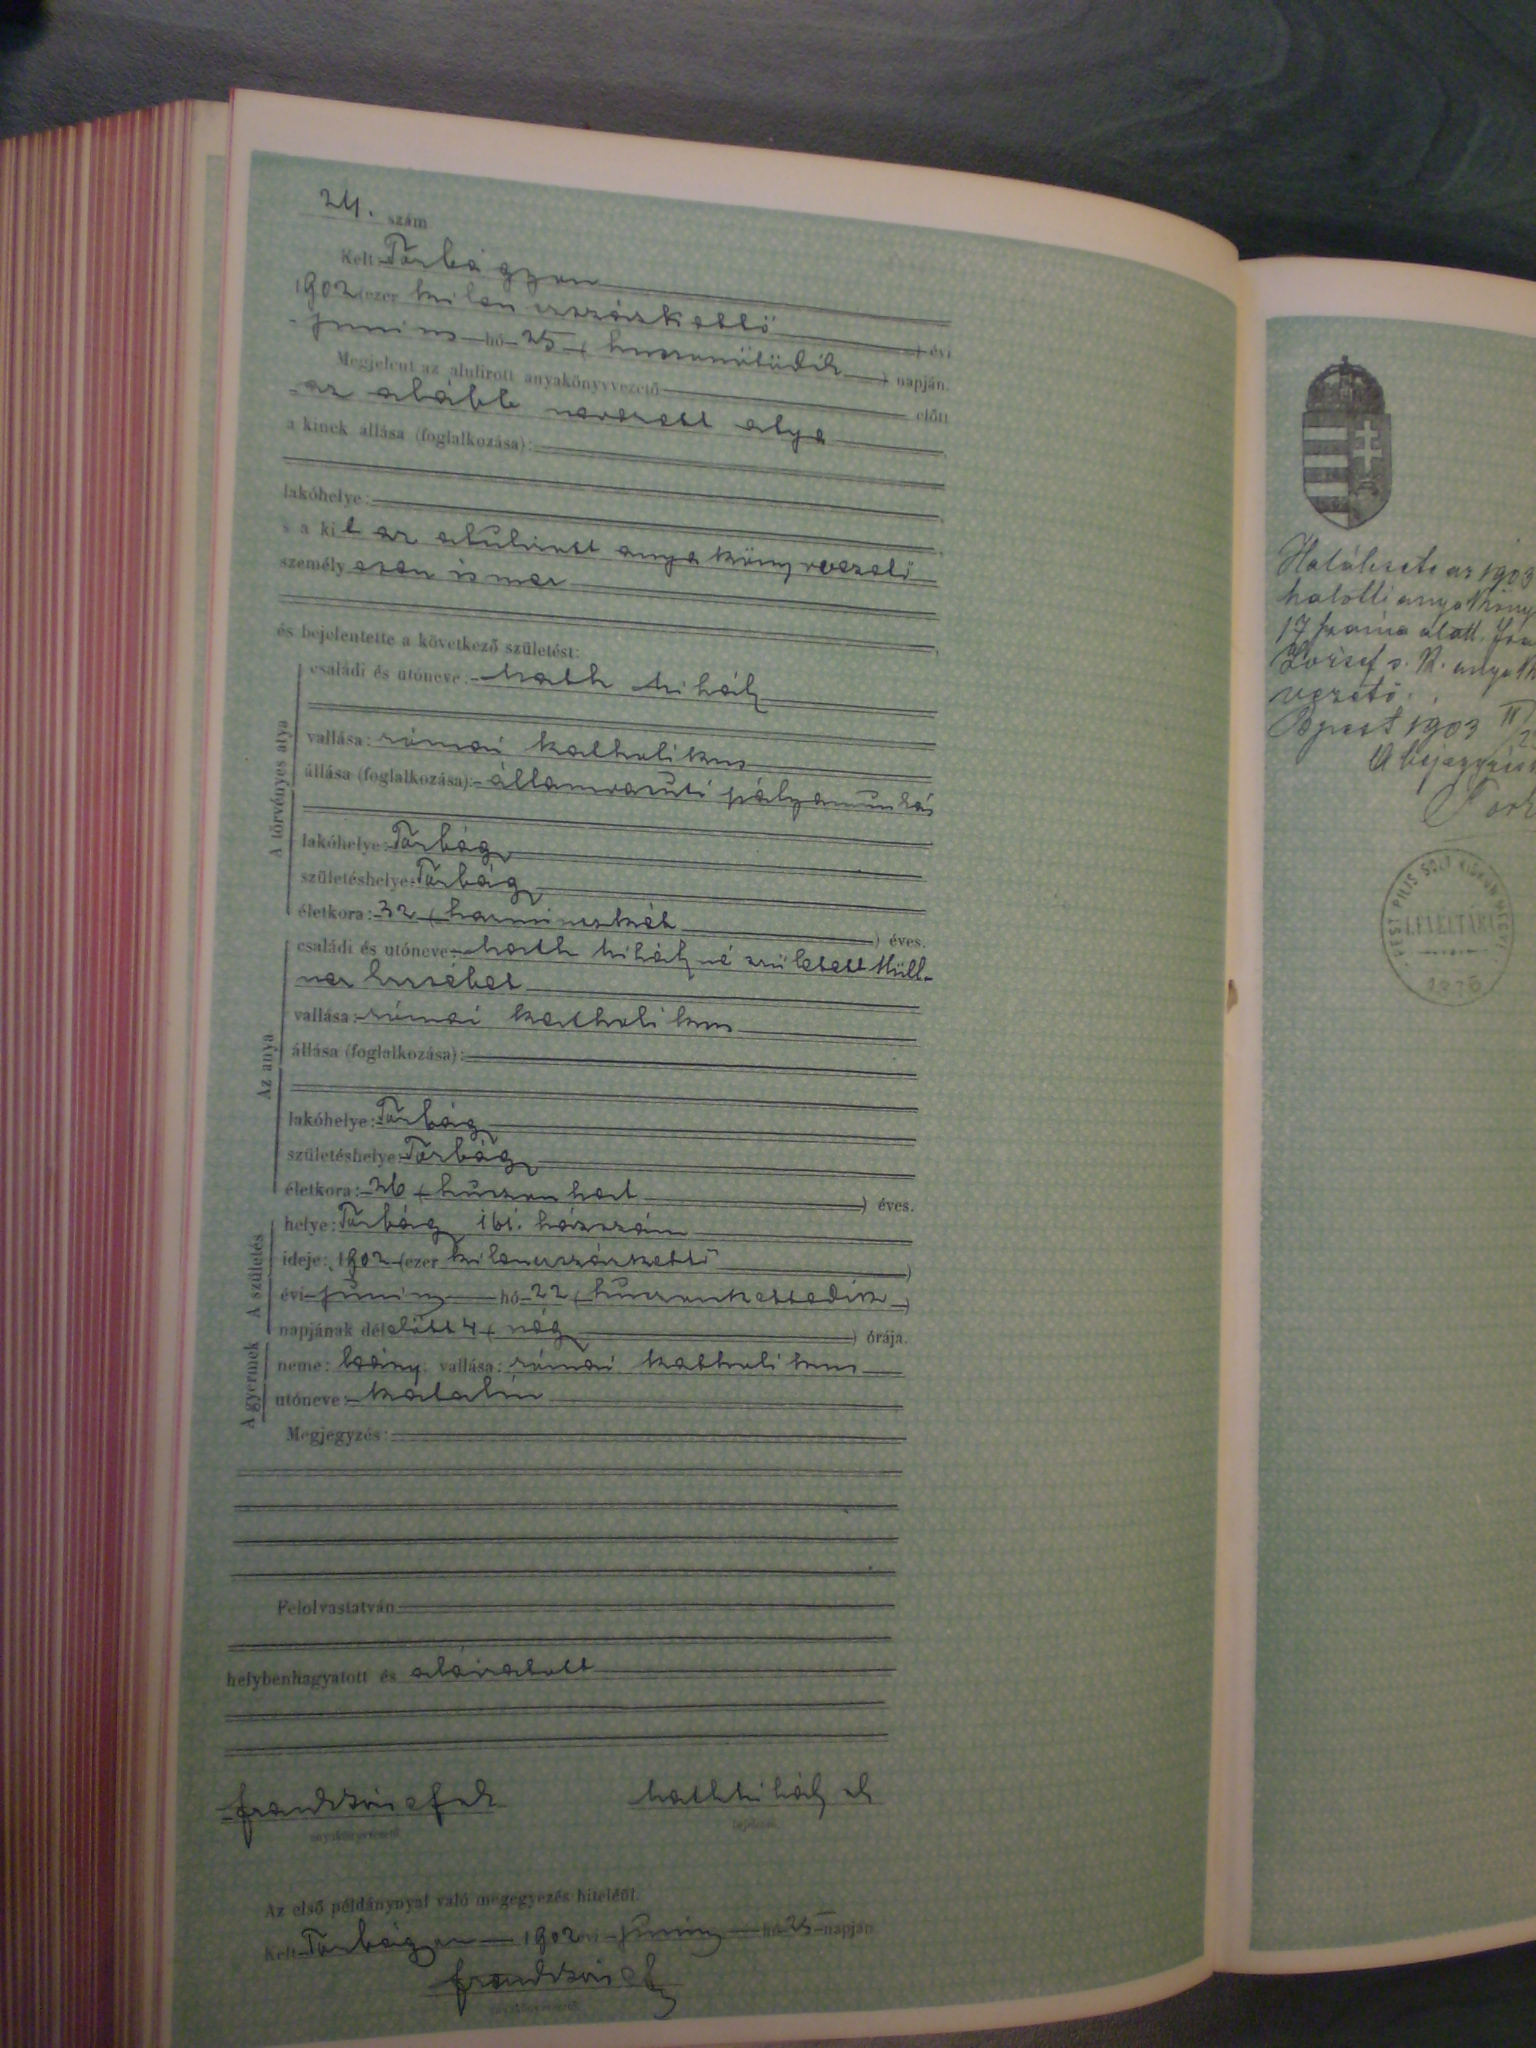 24. szám
Kelt Torbágyon
1902 (ezer kilenczszázkettő ) évi
junius hó 25 ( huszonötödik ) napján.
Megjelent az alulirott anyakönyvvezető előtt
az alább nevezett atya
a kinek állása (foglalkozása):
lakóhelye:
s a kit az alulirott anyakönyvvezető
személyesen ismer
és bejelentette a következő születést:
A törvényes atya
családi és utóneve: Mihály
vallása: római katholikus
állása (foglalkozása): államvasuti pályamunkás
lakóhelye: Torbágy
születéshelye: Torbágy
életkora: 32 ( harminczkét ) éves.
Az anya
családi és utóneve: Mihályné született Müll-
ner Erzsébet
vallása: római katholikus
állása (foglalkozása):
lakóhelye: Torbágy
születéshelye: Torbágy
életkora: 26 ( huszonhat ) éves.
A születés
helye: Torbágy 161. házszám
ideje: 1902 (ezer kilenczszázkettő )
évi junius hó 22 ( huszonkettedik )
napjának délelőtt 4 ( négy ) órája.
A gyermek
neme: leány vallása: római katholikus
utóneve: Katalin
Megjegyzés:
Felolvastatván
helybenhagyatott és aláiratott
Frank József
anyakönyvvezető
Mihály
bejelentő
Az első példánynyal való megegyezés hiteléül.
Kelt Torbágyon 1902 évi junius hó 25 napján
Frank József
anyakönyvvezető
Halálesete az 1903
halotti anyakönyv
17 száma alatt.
József s. k. anyak
vezető.
Bpest 1903 II/
A bejegyzés
Torb
PEST PILIS SOLT KISKUN MEGYE
LEVÉLTÁRA
1876